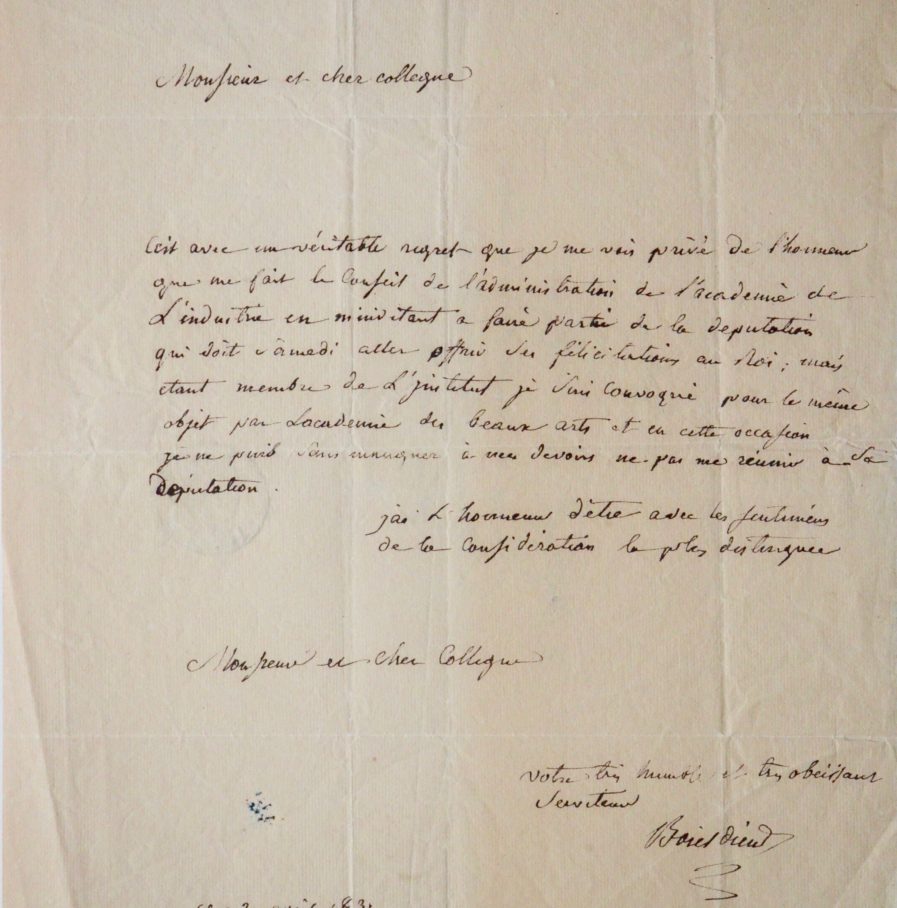 Monsieur et cher collegue
C'est avec un véritable regret que je me vois privé de l'honneur
que me fait le Conseil de l'administration de l'academie de
L'industrie en minvitant a faire partie de la deputation
qui doit samedi aller offrir ses félicitations au Roi ; mais
etant membre de L'institut je suis Convoqué pour le même
objet par Lacademie des beaux arts et en cette occasion
je ne puis sans manquer à mes devoirs ne pas me réunir à Sa
Députation.
jai L'honneur d'être avec les sentimens
de la Considération la plus distinguee
Monsieur et Cher Collegue
votre très humble et tres obeissant
Serviteur
Boieldieu